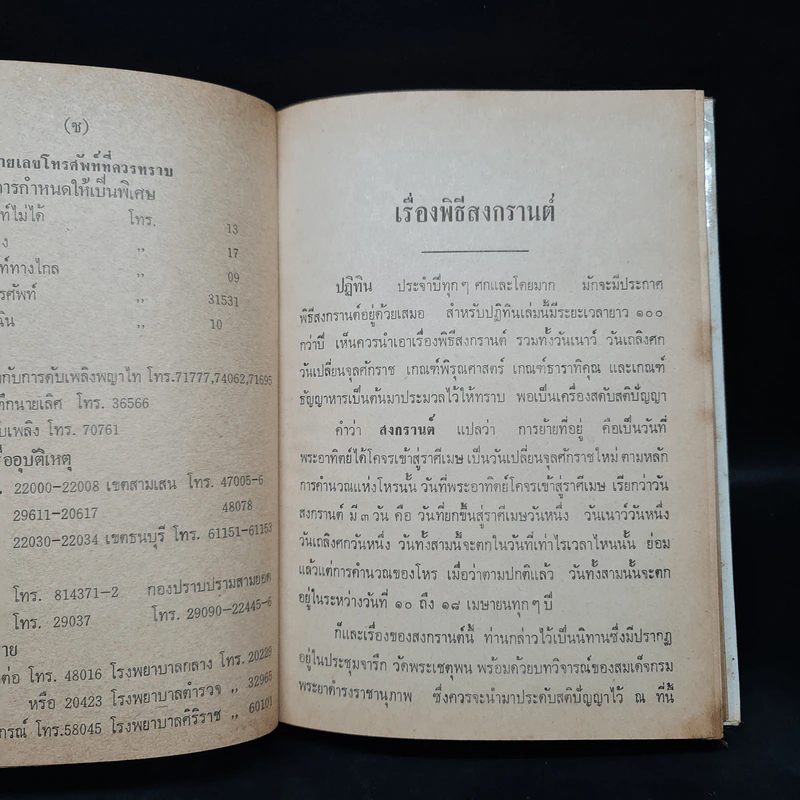 (ซ)
ายเลขโทรศัพท์ที่ควรทราบ
การกำหนดให้เป็นพิเศษ
ท์ไม่ได้ โทร. 13
ง ,, 17
ท์ทางไกล ,, 09
รศัพท์ ,, 31531
ฉิน ,, 10
งกับการดับเพลิงพญาไท โทร.71777,74062,71695
ทึกนายเลิศ โทร. 36566
บเพลิง โทร. 70761
รืออุบัติเหตุ
22000-22008 เขตสามเสน โทร. 47005-6
29611-20617 48078
22030-22034 เขตธนบุรี โทร. 61151-61153
โทร. 814371-2 กองปราบปรามสามยอด
โทร. 29037 โทร. 29090-22445-6
าย
ต่อ โทร. 48016 โรงพยาบาลกลาง โทร. 20229
หรือ 20423 โรงพยาบาลตำรวจ ,, 32965
กรณ์ โทร.58045 โรงพยาบาลศิริราช ,, 60101
เรื่องพิธีสงกรานต์
ปฏิทิน ประจำปีทุกๆ ศกและโดยมาก มักจะมีประกาศ
พิธีสงกรานต์อยู่ด้วยเสมอ สำหรับปฏิทินเล่มนี้มีระยะเวลายาว ๑๐๐
กว่าปี เห็นควรนำเอาเรื่องพิธีสงกรานต์ รวมทั้งวันเนาว์ วันเถลิงศก
วันเปลี่ยนจุลศักราช เกณฑ์พิรุณศาสตร์ เกณฑ์ธาราทิคุณ และเกณฑ์
ธัญญาหารเป็นต้นมาประมวลไว้ให้ทราบ พอเป็นเครื่องสดับสติปัญญา
คำว่า สงกรานต์ แปลว่า การย้ายที่อยู่ คือเป็นวันที่
พระอาทิตย์ได้โคจรเข้าสู่ราศีเมษ เป็นวันเปลี่ยนจุลศักราชใหม่ ตามหลัก
การคำนวณแห่งโหรนั้น วันที่พระอาทิตย์โคจรเข้าสู่ราศีเมษ เรียกว่าวัน
สงกรานต์ มี ๓ วัน คือ วันที่ยกขึ้นสู่ราศีเมษวันหนึ่ง วันเนาว์วันหนึ่ง
วันเถลิงศกวันหนึ่ง วันทั้งสามนี้จะตกในวันที่เท่าไรเวลาไหนนั้น ย่อม
แล้วแต่การคำนวณของโหร เมื่อว่าตามปกติแล้ว วันทั้งสามนั้นจะตก
อยู่ในระหว่างวันที่ ๑๐ ถึง ๑๘ เมษายนทุกๆ ปี
ก็และเรื่องของสงกรานต์นี้ ท่านกล่าวไว้เป็นนิทานซึ่งมีปรากฏ
อยู่ในประชุมจารึก วัดพระเชตุพน พร้อมด้วยบทวิจารณ์ของสมเด็จกรม
พระยาดำรงราชานุภาพ ซึ่งควรจะนำมาประดับสติปัญญาไว้ ณ ที่นี้